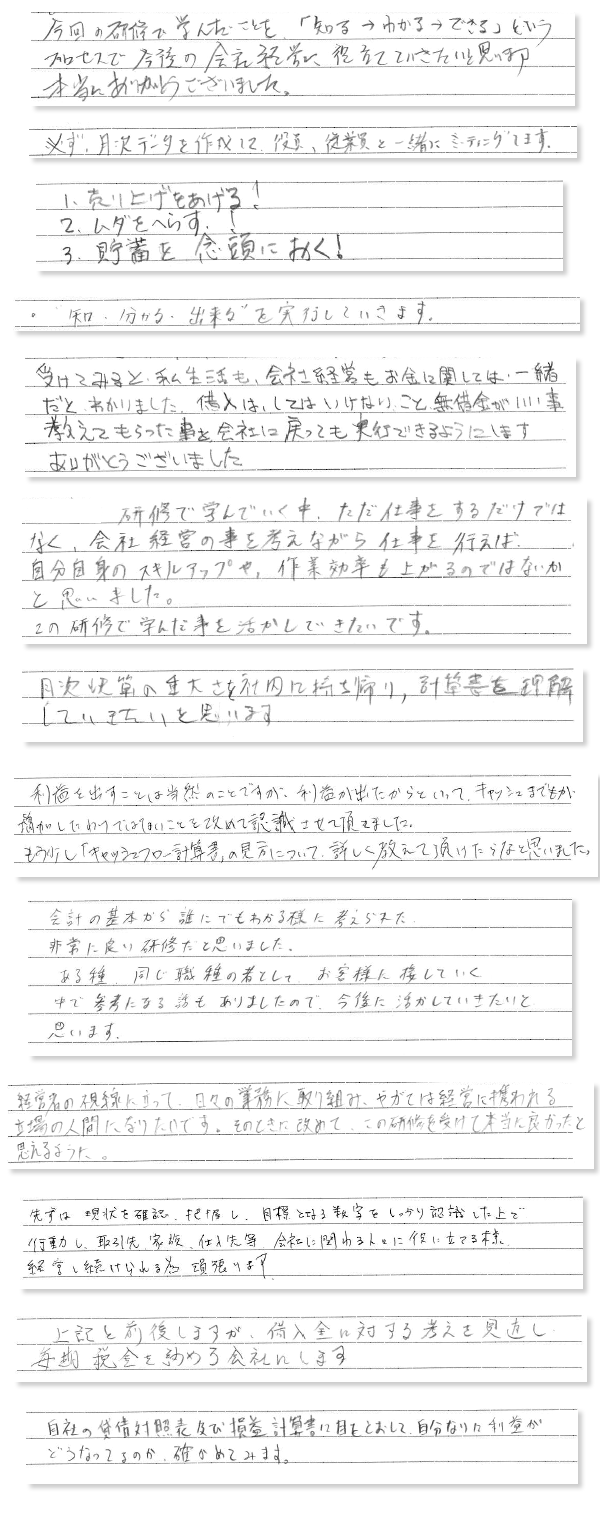 今回の研修で学んだことを、「知る→わかる→できる」という
プロセスで今後の会社経営に役立てていきたいと思います
本当にありがとうございました。
必ず、月次データを作成して、役員、従業員と一緒にミーティングします。
1. 売り上げをあげる!
2. ムダをへらす!
3. 貯蓄を念頭におく!
・ "知・分かる・出来る"を実行していきます。
受けてみると、私生活も、会社経営もお金に関しては、一緒
だと、わかりました、借入は、してはいけないこと、無借金がいい事
教えてもらった事を会社に戻っても実行できるようにします
ありがとうございました
研修で学んでいく中、ただ仕事をするだけでは
なく、会社経営の事を考えながら仕事を行えば、
自分自身のスキルアップや、作業効率も上がるのではないか
と思いました。
この研修で学んだ事を活かしていきたいです。
月次決算の重大さを社内に持ち帰り、計算書を理解
していきたいと思います
利益を出すことは当然のことですが、利益が出たからといって、キャッシュまでもが
増加したわけではないことを改めて認識させて頂きました。
もう少し「キャッシュフロー計算書」の見方について、詳しく教えて頂けたらなと思いました。
会計の基本から誰にでもわかる様に考えられた
非常に良い研修だと思いました。
ある種、同じ職種の者として、お客様に接していく
中で参考になる話もありましたので、今後に活かしていきたいと
思います。
経営者の視線に立って、日々の業務に取り組み、やがては経営に携われる
立場の人間になりたいです。そのときに改めて、この研修を受けて本当に良かったと
思えるように。
先ずは現状を確認、把握し、目標となる数字をしっかり認識した上で
行動し、取引先、家族、仕入先等 会社に関わる人々に役に立てる様、
経営し続けられる為 頑張ります
上記と前後しますが、借入金に対する考えを見直し
毎期税金を納める会社にします
自社の貸借対照表及び損益計算書に目をとおして、自分なりに利益が
どうなってるのか、確かめてみます。